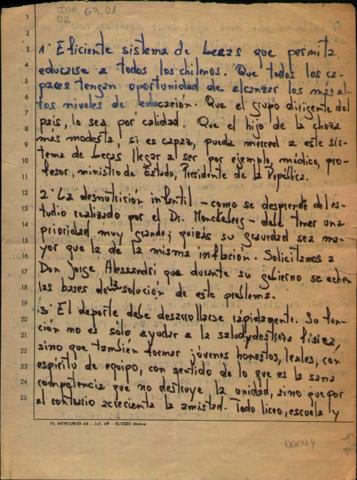 JOP 69.01
02
1
1. Eficiente sistema de becas que permita
educarse a todos los chilenos. Que todos los ca-
paces tengan oportunidad de alcanzar los más al-
tos niveles de educación. Que el grupo dirigente del
país, lo sea por calidad. Que el hijo de la choza
más modesta, si es capaz, pueda merced a este sis-
tema de becas llegar a ser por ejemplo, médico, pro-
fesor, ministro de Estado, Presidente de la República.
2. La desnutrición infantil - como se desprende del es-
tudio realizado por el Dr. Monckeberg - debe tener una
prioridad muy grande; quizás su gravedad sea ma-
yor que la de la misma inflación. Solicitamos a
Don Jorge Alessandri que durante su gobierno se echen
las bases de la solución de este problema.
3. El deporte debe desarrollarse rápidamente. Su fun-
ción no es sólo ayudar a la salud y destreza física,
sino que también formar jóvenes honestos, leales, con
espíritu de equipo, con sentido de lo que es la sana
competencia que no destruye la unidad, sino que por
el contrario acrecienta la amistad. Todo liceo, escuela y
EL MERCURIO